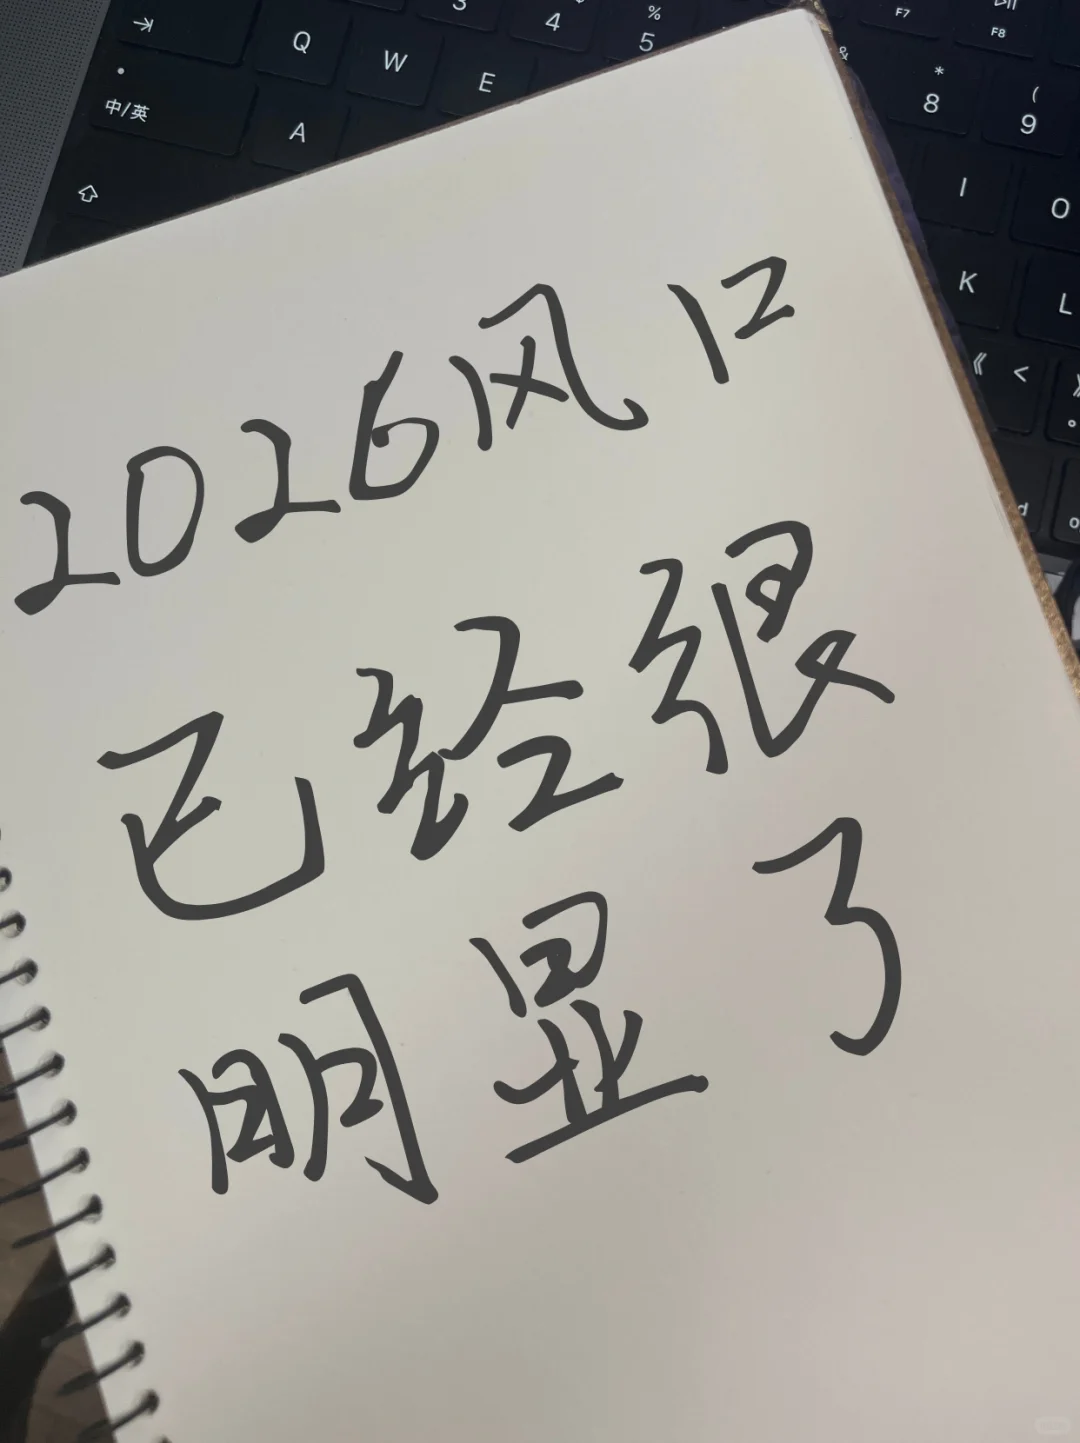 ⇥ Q W E 3 4 % 5 F7 F8
中/英 A & * 8 ( 9
I O
K L
《 < 》 。
2026风口
已经很
明显了